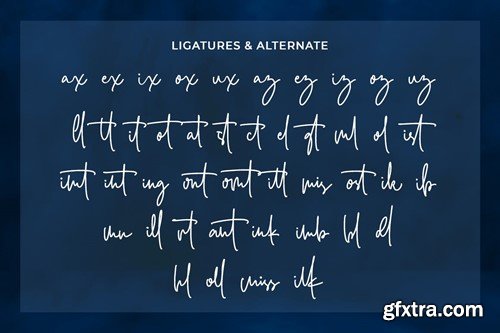 LIGATURES & ALTERNATE
ax ex ix ox ux az ez iz oz uz
ll tt it ot at st ct el ft ml ol ist
imt int ing ont omt itt mis ost ik ib
mn ill rt ant ink imb bl dl
bl oll miss ilk
gfxtra.com